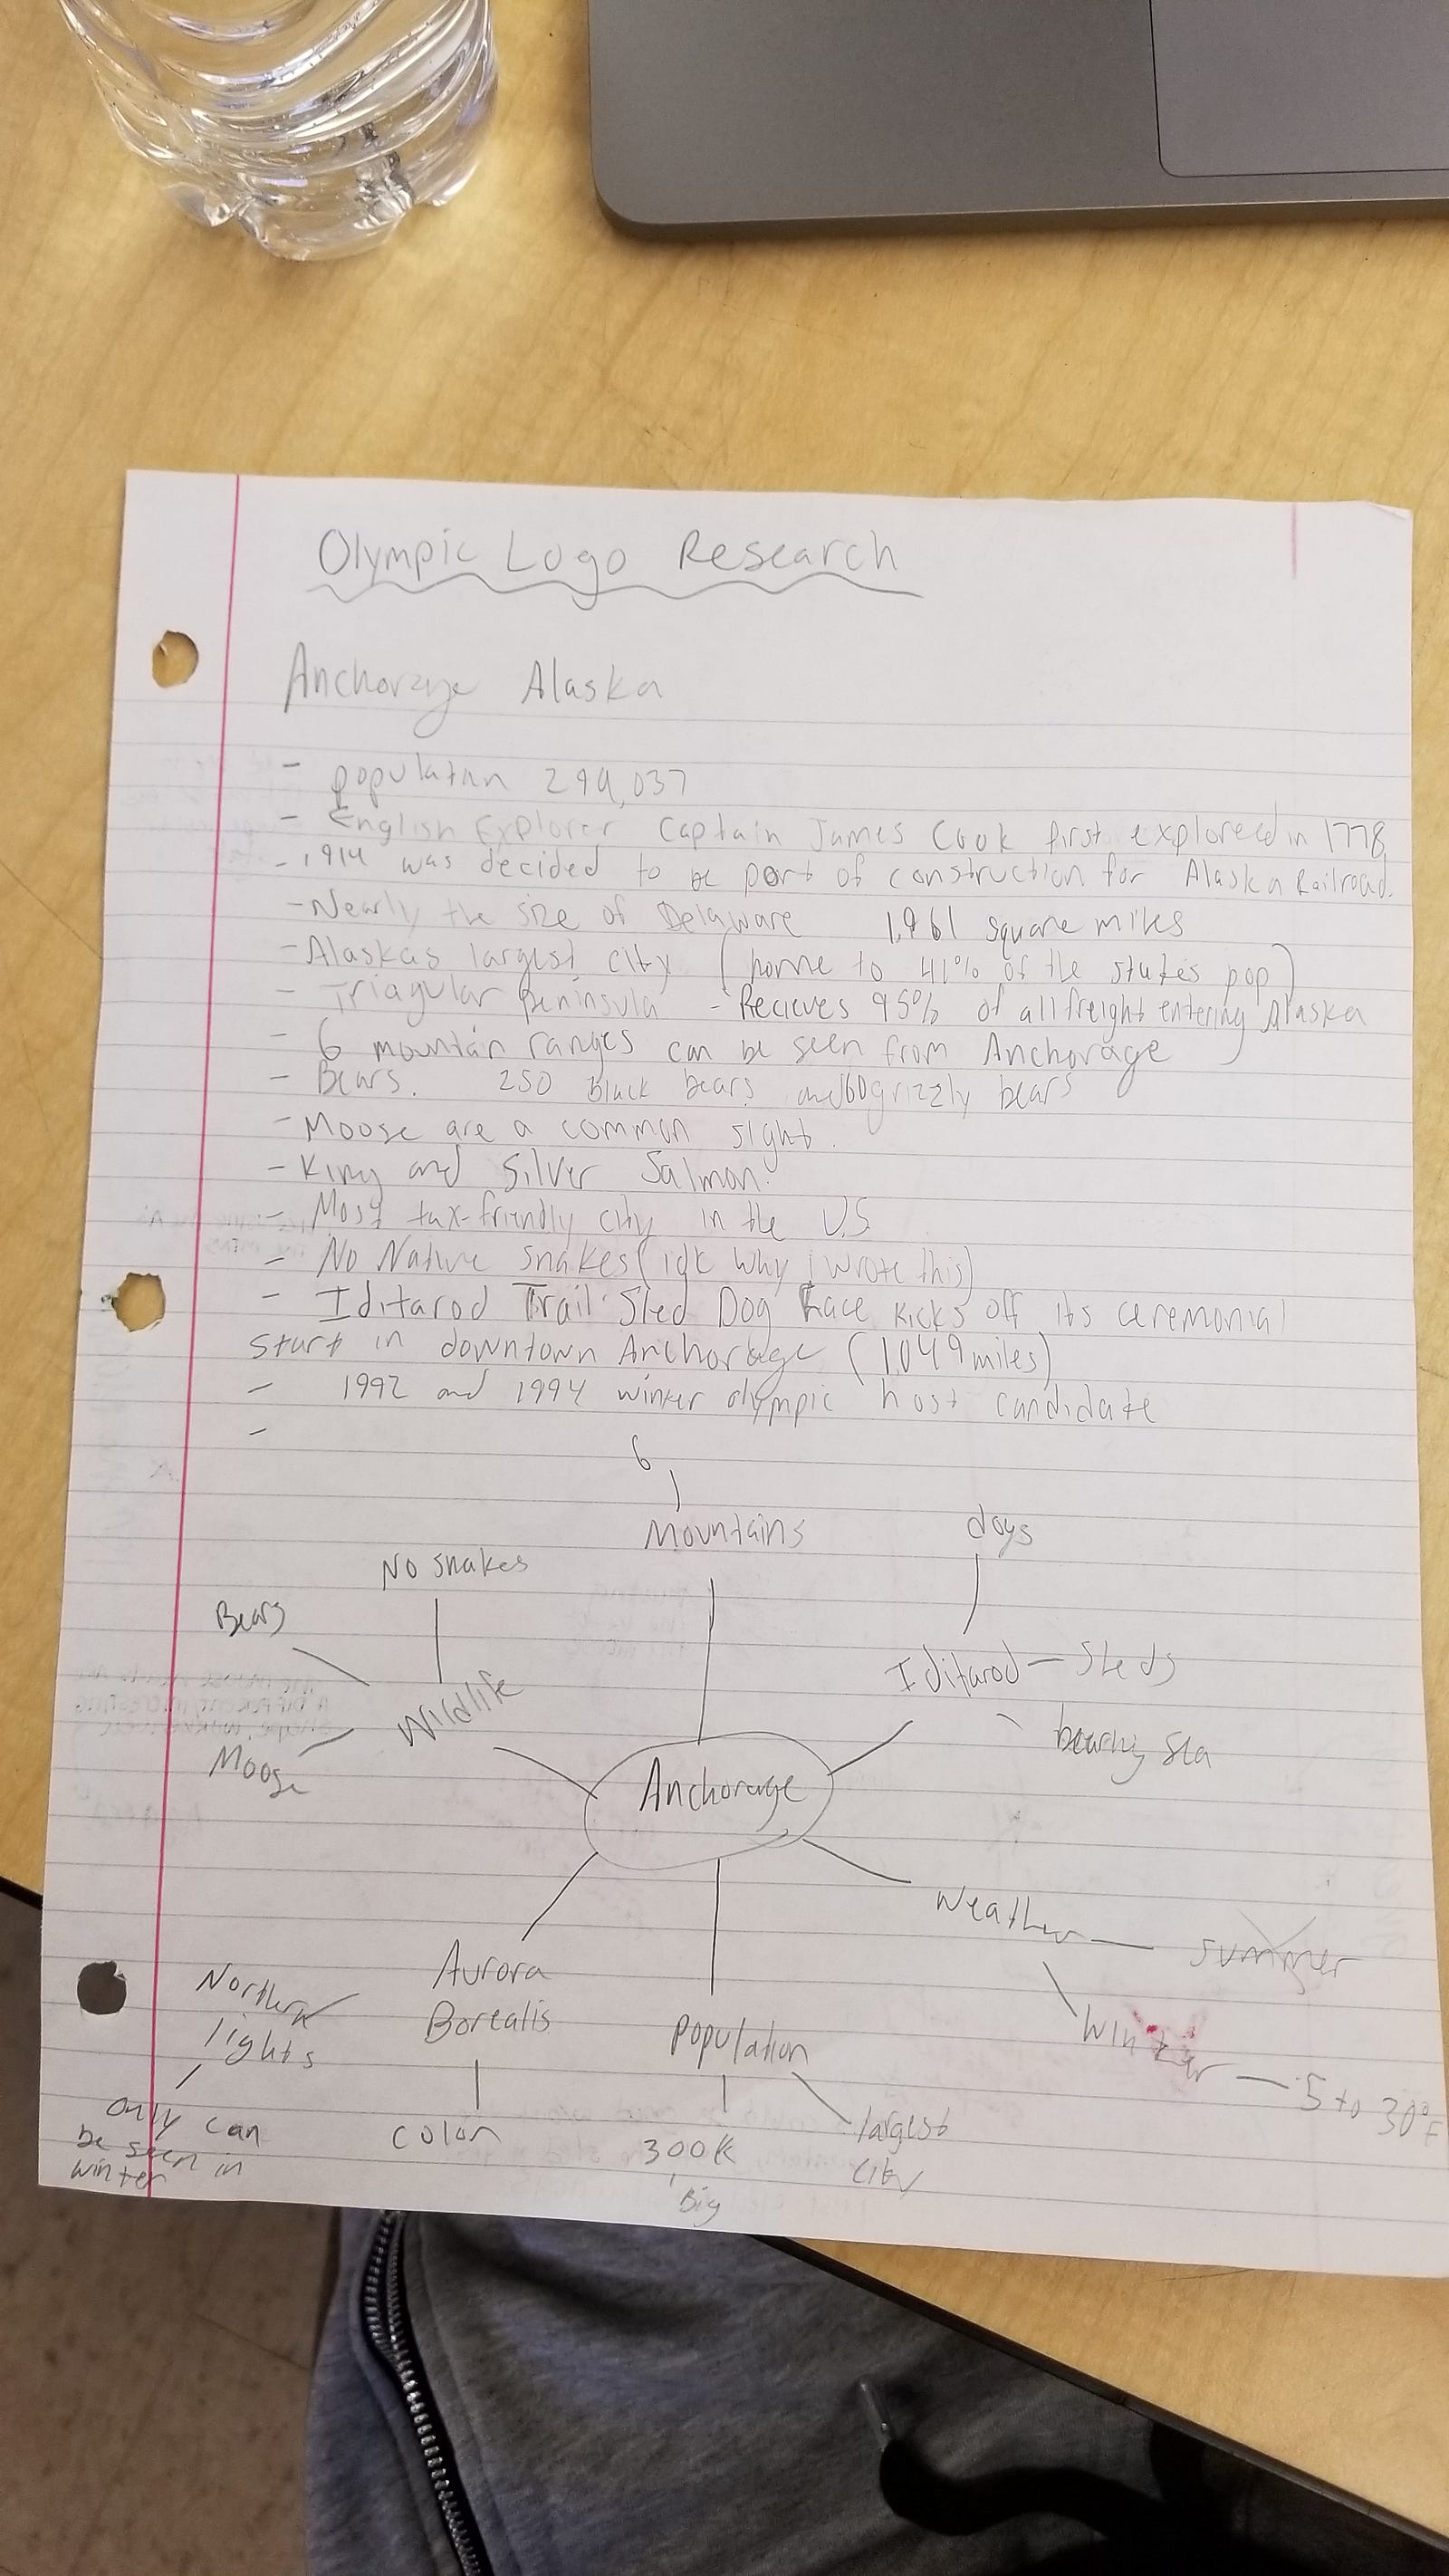 Olympic Logo Research
Anchorage Alaska
- population 299,037
- English Explorer Captain James Cook first explored in 1778
- 1914 was decided to be port of construction for Alaska Railroad.
- Nearly the size of Delaware 1,961 square miles
- Alaskas largest city (home to 41% of the states pop)
- Triagular peninsula - Recieves 95% of all freight entering Alaska
- 6 mountain ranges can be seen from Anchorage
- Bears. 250 Black bears and 60 grizzly bears
- Moose are a common sight.
- King and Silver Salmon.
- Most tax-friendly city in the U.S
- No Native snakes (idk why i wrote this)
- Iditarod Trail Sled Dog Race kicks off its ceremonial
start in downtown Anchorage (1,049 miles)
- 1992 and 1994 winter olympic host candidate
-
6
Mountains
dogs
No snakes
Bears
Iditarod - Sleds
Wildlife
bearing sea
Moose
Anchorage
Weather - summer
Aurora
Borealis
Northern
lights
Population
Winter - 5 to 30°F
only can
be seen in
winter
color
300K
Big
largest
city